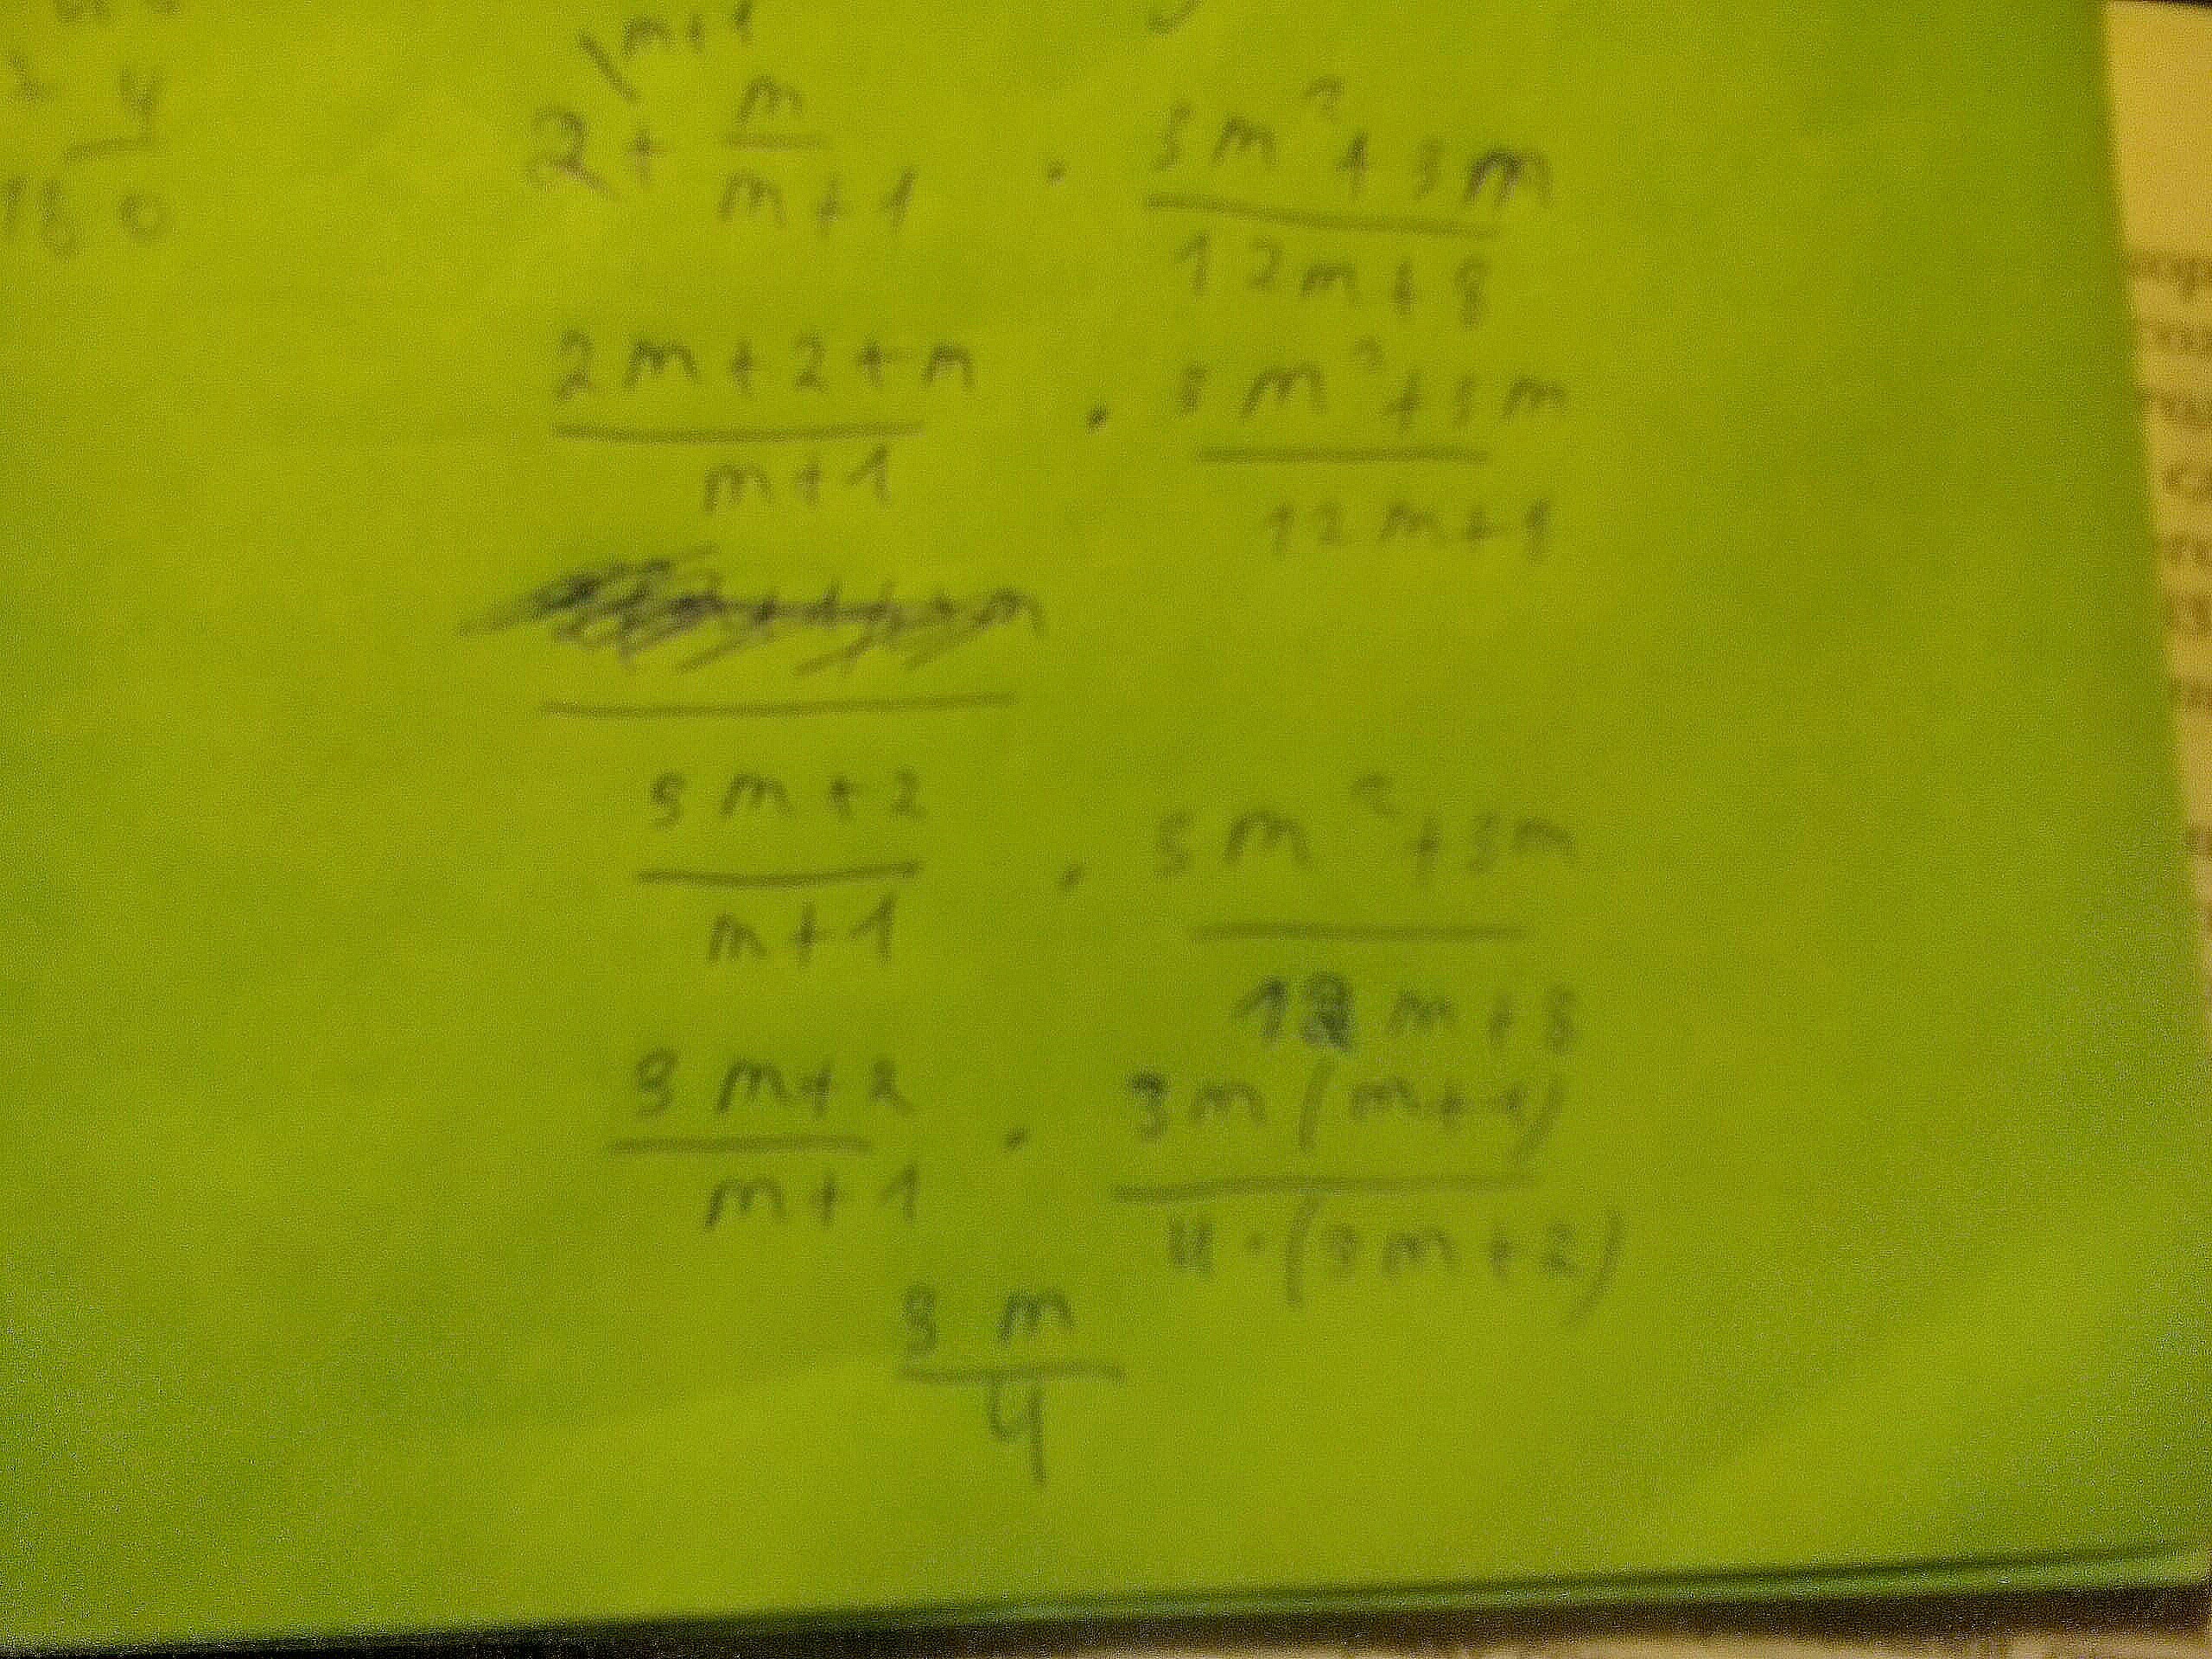 4
180
m+1
2 + m/(m+1) · (3m²+3m)/(12m+8)
(2m+2+m)/(m+1) · (3m²+3m)/(12m+8)
(3m+2)/(m+1) · (3m²+3m)/(12m+8)
(3m+2)/(m+1) · (3m(m+1))/(4·(3m+2))
3m/4